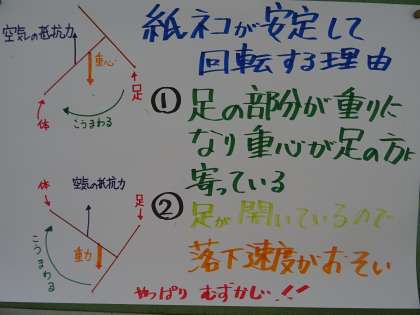 紙ネコが安定して
回転する理由
空気の抵抗力
重心
足
体
こうまわる
① 足の部分が重りに
なり重心が足の方に
寄っている
体
空気の抵抗力
足
重力
こうまわる
② 足が開いているので
落下速度がおそい
やっぱり むずかしい!!